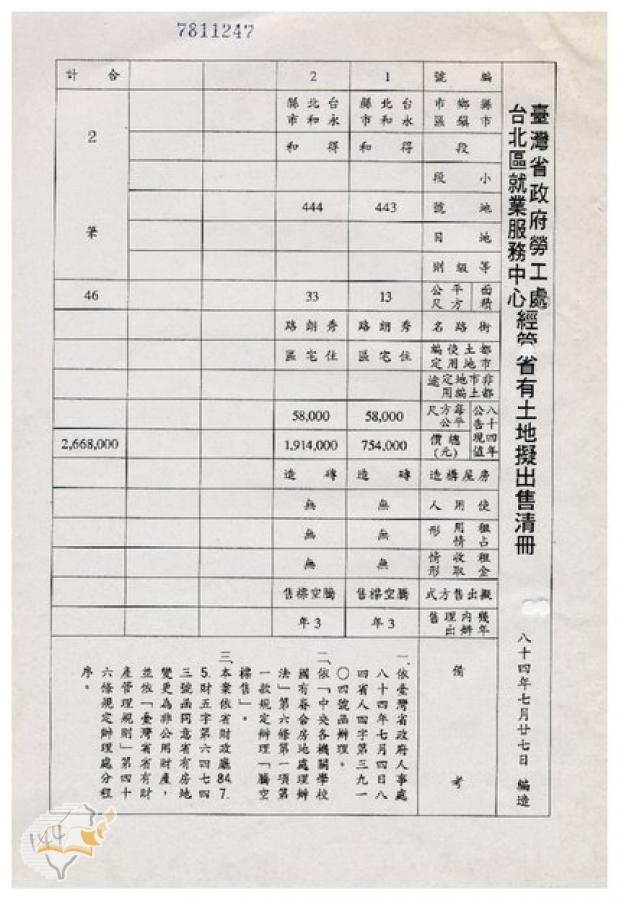 7811247
臺灣省政府勞工處
台北區就業服務中心
經管省有土地擬出售清冊
八十四年七月廿七日 編造
編號 1 2 合計
縣市鄉鎮市區 台北縣永和市 台北縣永和市 2筆
段 得和 得和
小段
地號 443 444
地目
等級則
面積平方公尺 13 33 46
街路名 秀朗路 秀朗路
都市土地使用編定 住宅區 住宅區
非都市土地編定用途
八十四年公告現值 每平方公尺 58,000 58,000
總價(元) 754,000 1,914,000 2,668,000
房屋構造 磚造 磚造
使用人 無 無
租占用情形 無 無
租金收取情形 無 無
擬出售方式 騰空標售 騰空標售
幾年內辦理出售 3年 3年
備考
一、依臺灣省政府人事處
八十四年七月四日八
四省人四字第三九一
〇四號函辦理。
二、依「中央各機關學校
國有眷舍房地處理辦
法」第六條第一項第
一款規定辦理「騰空
標售」。
三、本案依省財政廳84.7.
5.財五字第六四七四
三號函同意省有房地
變更為非公用財產，
並依「臺灣省省有財
產管理規則」第四十
六條規定辦理處分程
序。
144